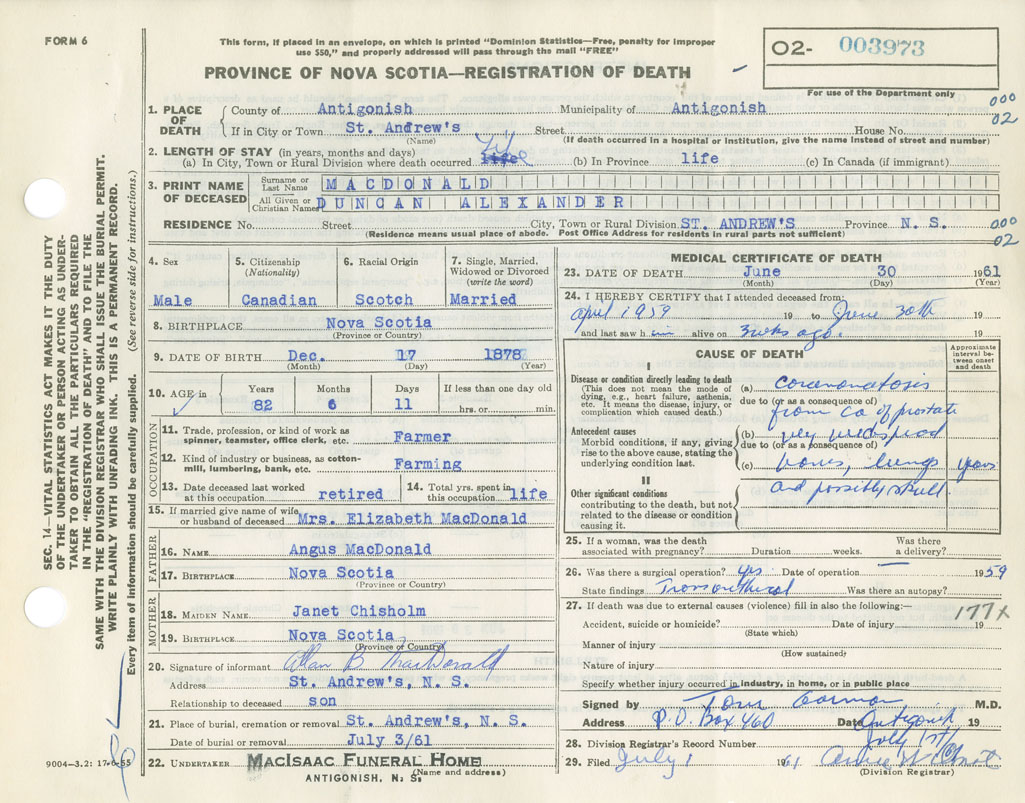 FORM 6
This form, if placed in an envelope, on which is printed "Dominion Statistics—Free, penalty for improper
use $50," and properly addressed will pass through the mail "FREE"
PROVINCE OF NOVA SCOTIA—REGISTRATION OF DEATH
02- 003973
For use of the Department only
1. PLACE OF DEATH County of Antigonish Municipality of Antigonish 000
If in City or Town St. Andrew's Street House No. 02
(Name) (If death occurred in a hospital or Institution, give the name instead of street and number)
2. LENGTH OF STAY (in years, months and days)
(a) In City, Town or Rural Division where death occurred life (b) In Province life (c) In Canada (if immigrant)
3. PRINT NAME OF DECEASED Surname or Last Name MACDONALD
All Given or Christian Names DUNCAN ALEXANDER
RESIDENCE No. Street City, Town or Rural Division ST. ANDREW'S Province N. S. 000
(Residence means usual place of abode. Post Office Address for residents in rural parts not sufficient) 02
4. Sex Male
5. Citizenship (Nationality) Canadian
6. Racial Origin Scotch
7. Single, Married, Widowed or Divorced (write the word) Married
8. BIRTHPLACE Nova Scotia
(Province or Country)
9. DATE OF BIRTH Dec. 17 1878
(Month) (Day) (Year)
10. AGE in Years 82 Months 6 Days 11 If less than one day old hrs. or min.
OCCUPATION
11. Trade, profession, or kind of work as spinner, teamster, office clerk, etc. Farmer
12. Kind of industry or business, as cotton-mill, lumbering, bank, etc. Farming
13. Date deceased last worked at this occupation retired 14. Total yrs. spent in this occupation life
15. If married give name of wife or husband of deceased Mrs. Elizabeth MacDonald
FATHER
16. NAME Angus MacDonald
17. BIRTHPLACE Nova Scotia
(Province or Country)
MOTHER
18. MAIDEN NAME Janet Chisholm
19. BIRTHPLACE Nova Scotia
(Province or Country)
20. Signature of informant Allan B MacDonald
Address St. Andrew's, N. S.
Relationship to deceased son
21. Place of burial, cremation or removal St. Andrew's, N. S.
Date of burial or removal July 3/61
22. UNDERTAKER MACISAAC FUNERAL HOME
ANTIGONISH, N. S. (Name and address)
MEDICAL CERTIFICATE OF DEATH
23. DATE OF DEATH June 30 1961
(Month) (Day) (Year)
24. I HEREBY CERTIFY that I attended deceased from:
April 1959 19 to June 30th 19
and last saw h im alive on 3 wks ago. 19
CAUSE OF DEATH
Approximate interval between onset and death
I
Disease or condition directly leading to death (a)
(This does not mean the mode of dying, e.g., heart failure, asthenia, etc. It means the disease, injury, or complication which caused death.)
due to (or as a consequence of)
from Ca of prostate
Antecedent causes (b) very widespread
Morbid conditions, if any, giving rise to the above cause, stating the underlying condition last.
due to (or as a consequence of)
(c) bones, lungs years
II
and possibly skull
Other significant conditions
contributing to the death, but not related to the disease or condition causing it.
25. If a woman, was the death associated with pregnancy? Duration weeks. Was there a delivery?
26. Was there a surgical operation? yes Date of operation — 1959
State findings Transurethral Was there an autopsy?
27. If death was due to external causes (violence) fill in also the following:— 177X
Accident, suicide or homicide? Date of injury 19
(State which)
Manner of injury
(How sustained)
Nature of injury
Specify whether injury occurred in industry, in home, or in public place
Signed by M.D.
Address P.O. Box 460 Date Antigonish 19
July 1st/
28. Division Registrar's Record Number
29. Filed July 1 1961
(Division Registrar)
SEC. 14—VITAL STATISTICS ACT MAKES IT THE DUTY
OF THE UNDERTAKER OR PERSON ACTING AS UNDER-
TAKER TO OBTAIN ALL THE PARTICULARS REQUIRED
IN THE "REGISTRATION OF DEATH" AND TO FILE THE
SAME WITH THE DIVISION REGISTRAR WHO SHALL ISSUE THE BURIAL PERMIT.
WRITE PLAINLY WITH UNFADING INK. THIS IS A PERMANENT RECORD.
Every item of Information should be carefully supplied. (See reverse side for instructions.)
9004—3.2: 17-6-55